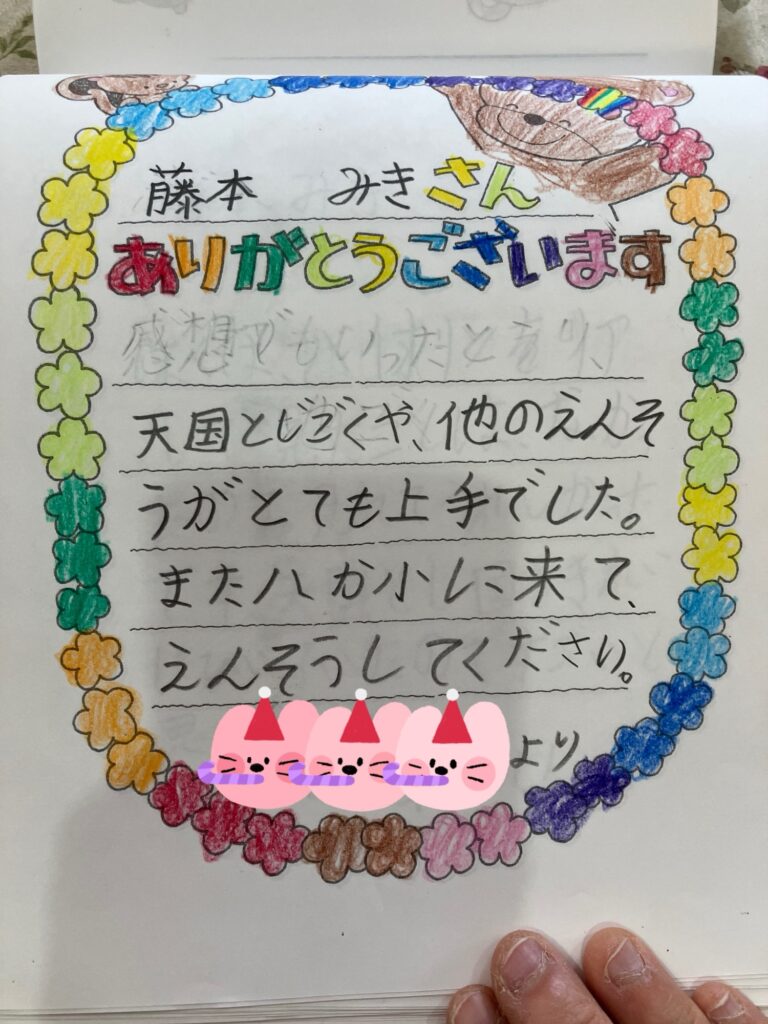 藤本 みきさん
ありがとうございます
天国とじごくや、他のえんそ
うがとても上手でした。
また八か小に来て、
えんそうしてください。
より